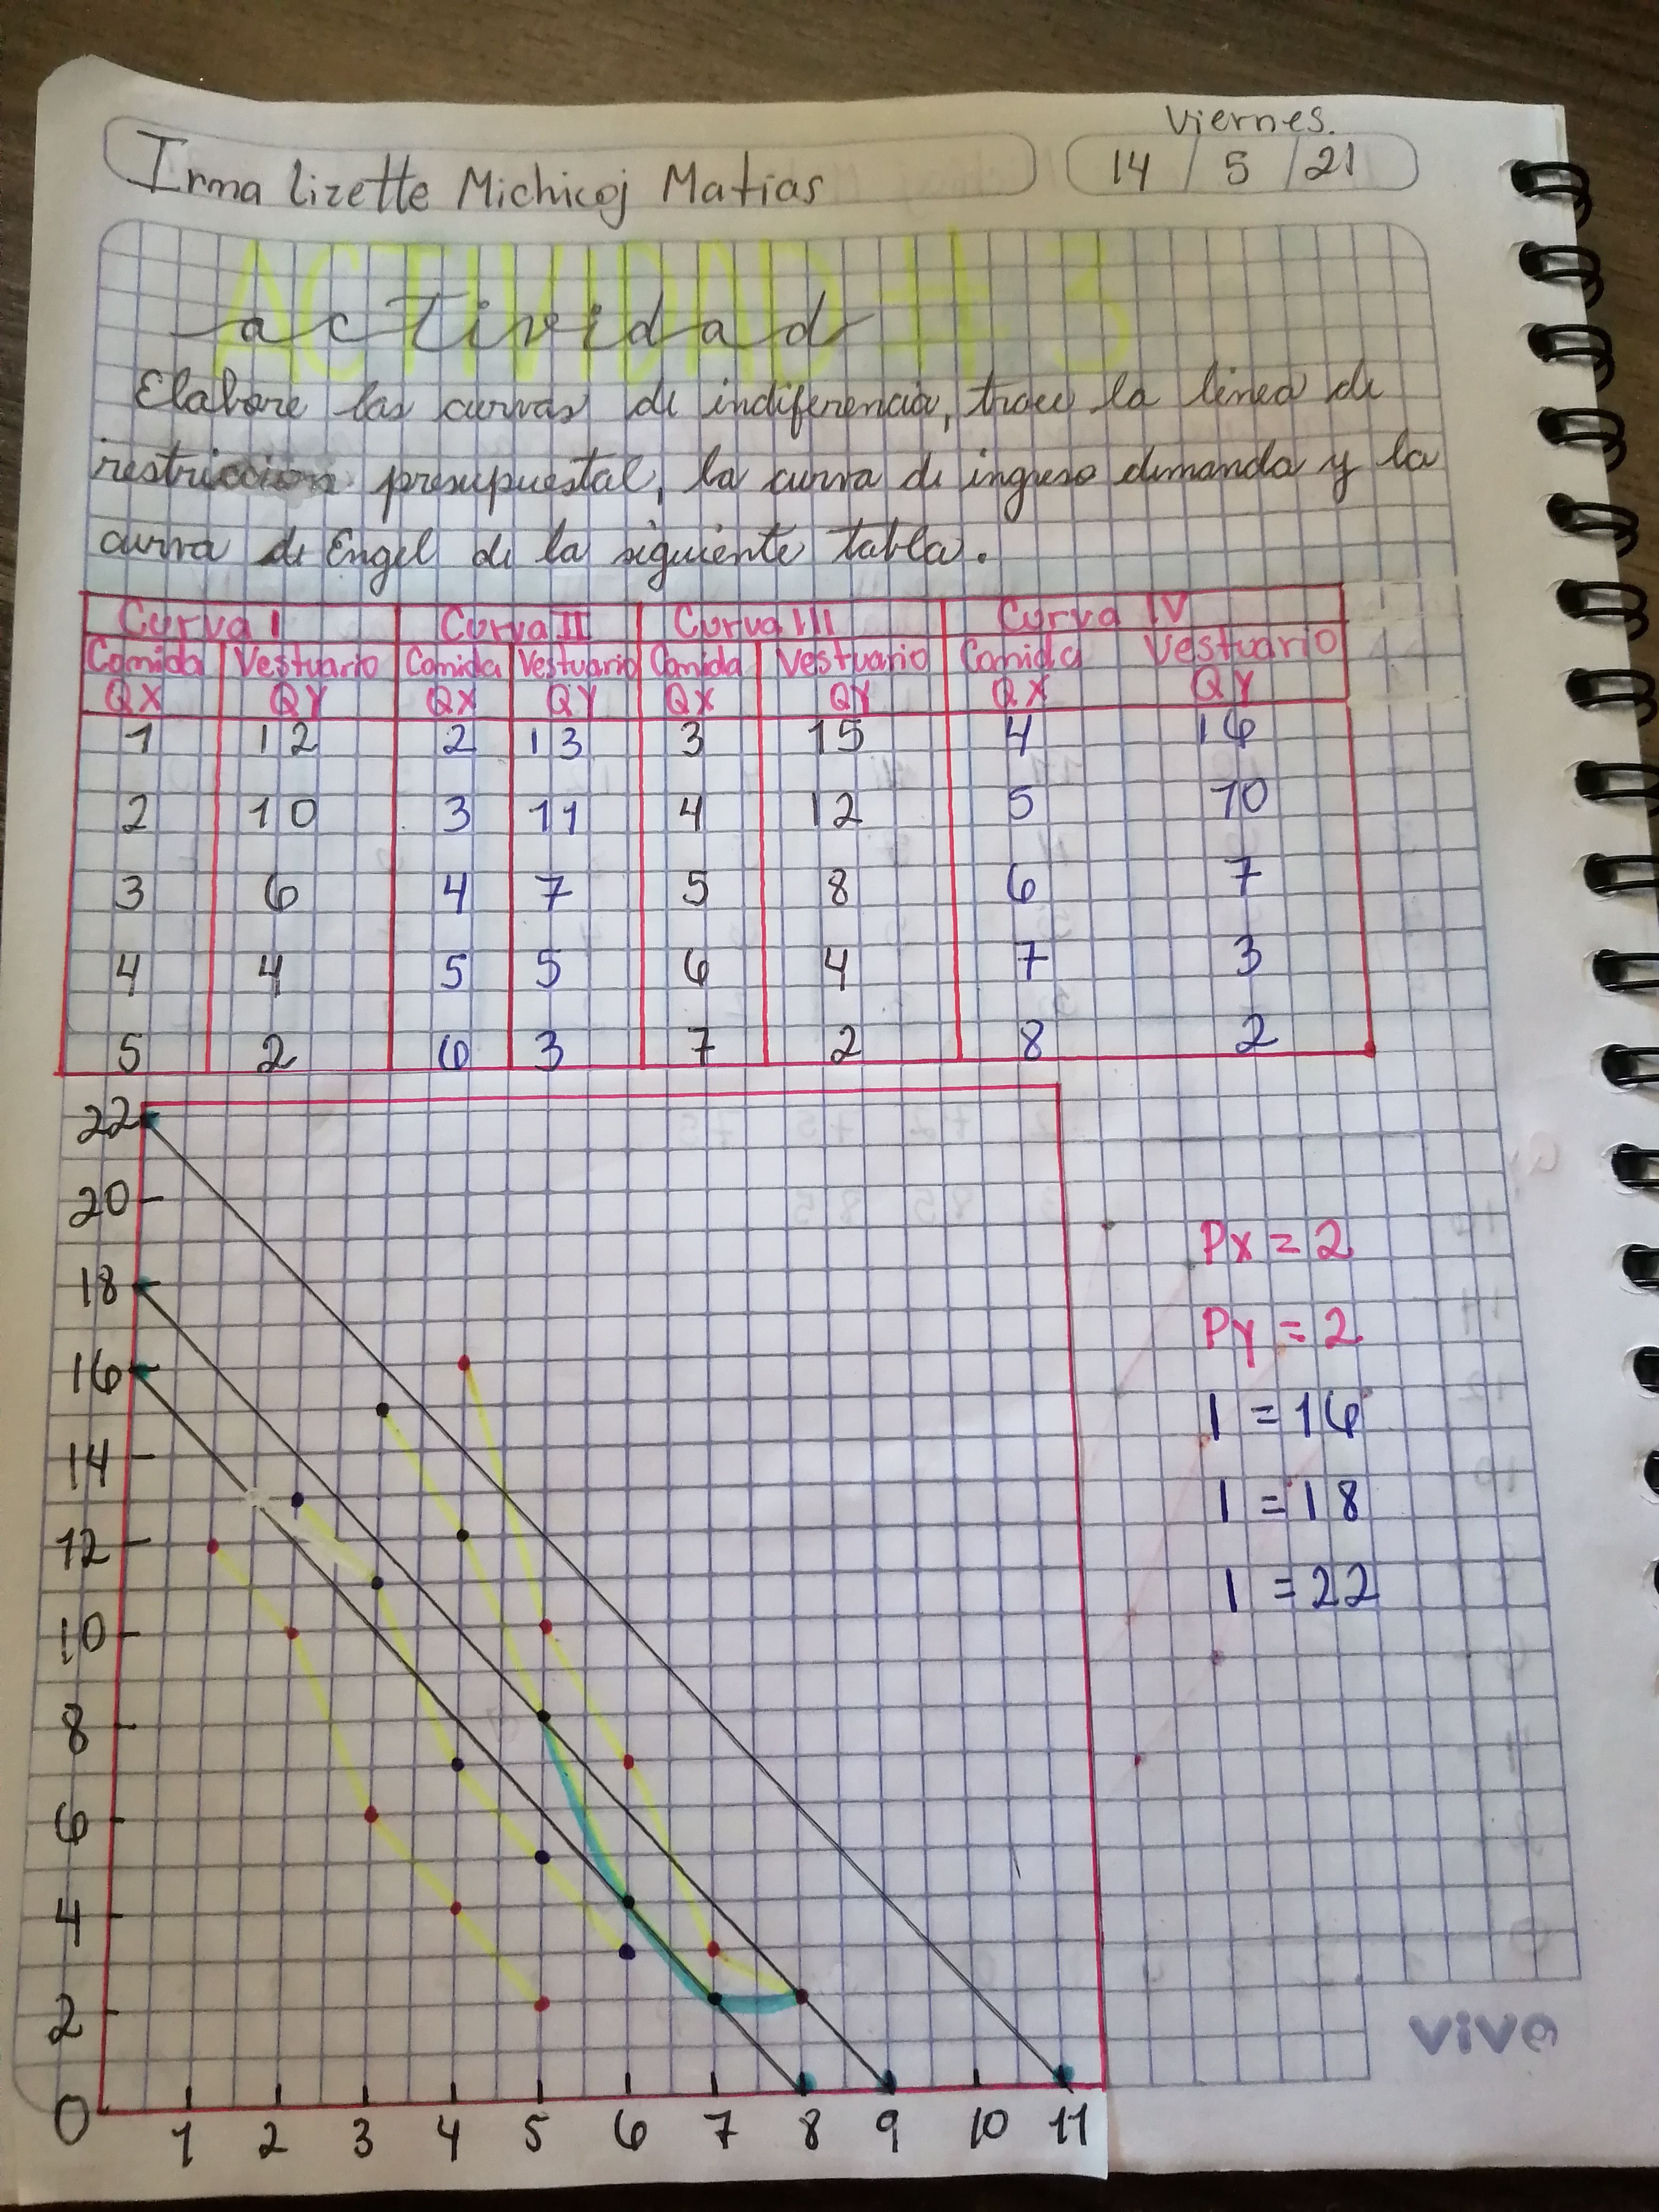 Viernes.
Irma Lizette Michicoj Matias
14 / 5 / 21
ACTIVIDAD # 3
actividad
Elabore las curvas de indiferencia, trace la linea de
restriccion presupuestal, la curva de ingreso demanda y la
curva de Engel de la siguiente tabla.
Curva I Curva II Curva III Curva IV
Comida Vestuario Comida Vestuario Comida Vestuario Comida Vestuario
QX QY QX QY QX QY QX QY
1 12 2 13 3 15 4 16
2 10 3 11 4 12 5 10
3 6 4 7 5 8 6 7
4 4 5 5 6 4 7 3
5 2 6 3 7 2 8 2
22
20
18
16
14
12
10
8
6
4
2
0
1 2 3 4 5 6 7 8 9 10 11
Px = 2
Py = 2
I = 16
I = 18
I = 22
vivo